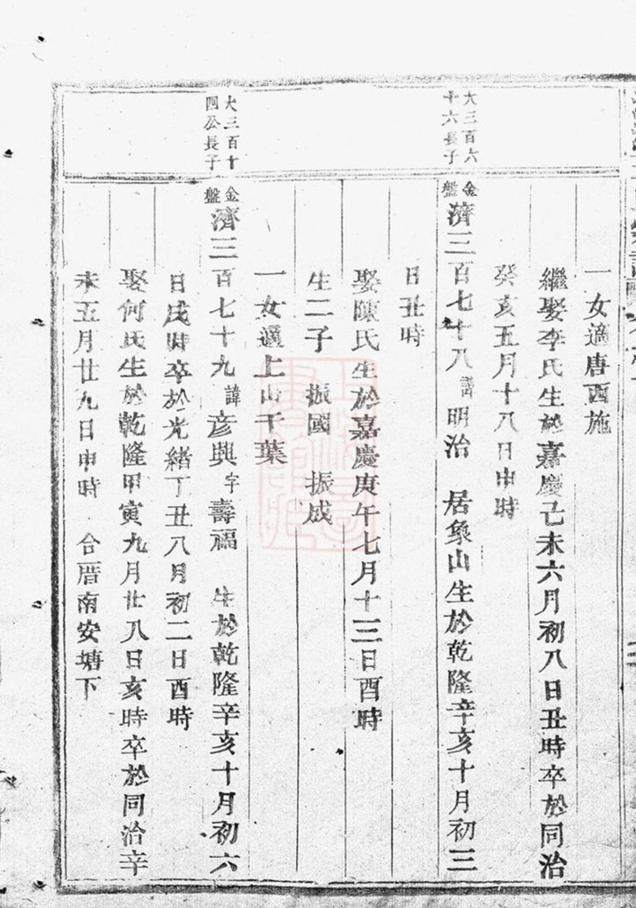 一女適唐西施
繼娶李氏生於嘉慶己未六月初八日丑時卒於同治
癸亥五月十八日申時
大三百六
十六長子
金
盤
濟三百七十八 諱 明治 居象山生於乾隆辛亥十月初三
日丑時
娶陳氏生於嘉慶庚午七月十三日酉時
生二子 振國 振成
一女適上山千葉
大三百十
四公長子
金
盤
濟三百七十九 諱 彥興 字 壽福 生於乾隆辛亥十月初六
日戌時卒於光緒丁丑八月初二日酉時
娶何氏生於乾隆甲寅九月廿八日亥時卒於同治辛
未五月廿九日申時 合厝南安塘下